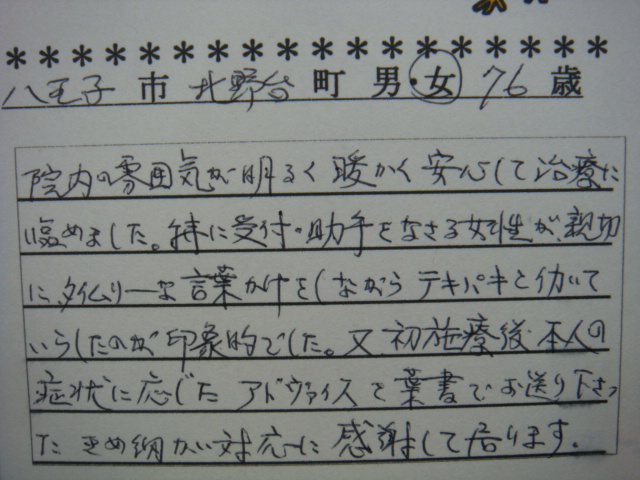 ＊＊＊＊＊＊＊＊＊＊＊＊＊＊＊＊＊＊＊＊＊＊
八王子 市 北野台 町 男・女 76 歳
院内の雰囲気が明るく暖かく安心して治療に
臨めました。特に受付・助手をなさる女性が、親切
に、タイムリーな言葉かけをしながらテキパキと動いて
いらしたのが印象的でした。又、初施療後、本人の
症状に応じたアドヴァイスを葉書でお送り下さっ
たきめ細かい対応に感謝して居ります。